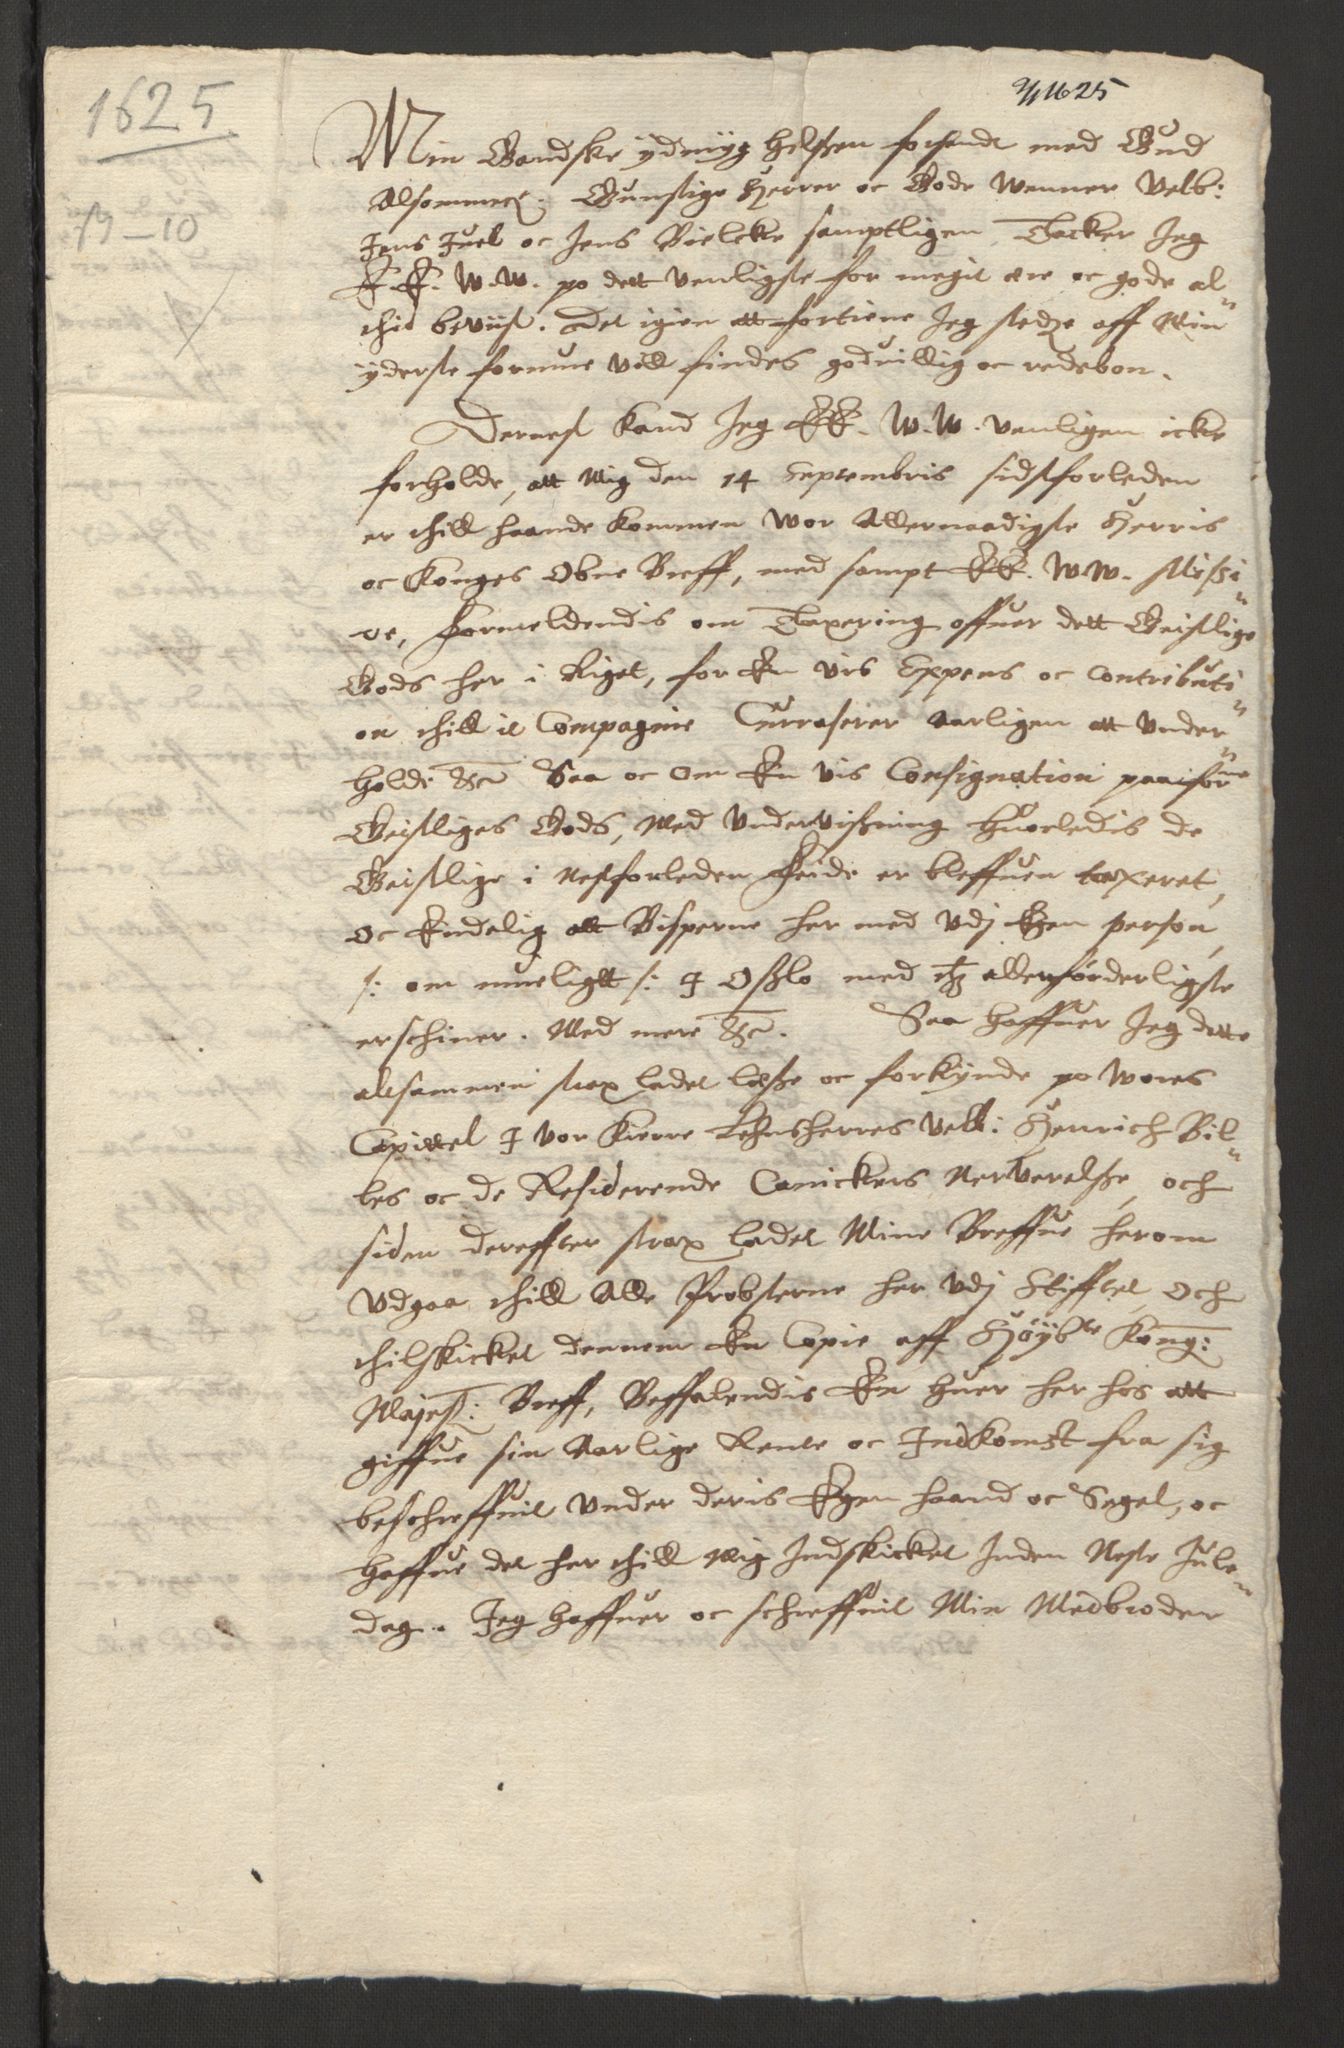 1625
2/1 1625
13-10
Min Gandske ydmyg helssen forsendt med Gud
Alsommect: Gunstige Herrer oc Gode Wenner Velb:
Jens Juel oc Jens Bielcke samptligen, Tacker Jeg
E.E. W.W. po dett venligste for megit ære oc gode al
thid beviist. Det igien att fortiene Jeg stedze aff Min
yderste formue vill findes goduillig oc redebon.
Dernest Kand Jeg EE. W.W. venligen icke
forholde, att Mig den 14 Septembris sidstforleden
er thill haande kommen wor Allernaadigste Herris
oc Konges Obne Breff, med sampt EE. W.W. Missi
ve, Formeldendis om Taxering offuer dett Geistlige
Gods her i Riget, for En viis Expens oc Contributi
on thill it Compagnie Curraserer Aarligen att under
holde &c Saa oc Om En vis Consignation paa forne
Geistliges Gods, Med Undervissning huorledis de
Geistlige i Nestforleden Feide er bleffuen taxeret,
Oc Endelig att Bisperne her med Vdj Egen person,
/: om mueligtt :/ J Osslo med thz allerforderligste
erschiner. Med mere &c. Saa haffuer Jeg dette
altsammen strax ladet læsse oc forkynde po wores
Capittel J vor Kierre Lehnsherres Velb: Henrich Bil
les oc de Residerende Canickers Nerverelsse, och
siden dereffter strax Ladet Mine Breffue herom
Vdgaa thill Alle Probsterne her Vdj Stifftet, Och
thilskicket dennem En Copie aff Höybte Kong:
Majest: Breff, Beffalendis En huer her hos att
giffue sin Aarlige Rente oc Indkomst fra sig
beschreffuit Vnder deris Egen haand oc Segel, oc
haffue det her thill Mig Indskicket Inden Neste Jule
dag. Jeg haffuer oc schreffuit Min Medbroder